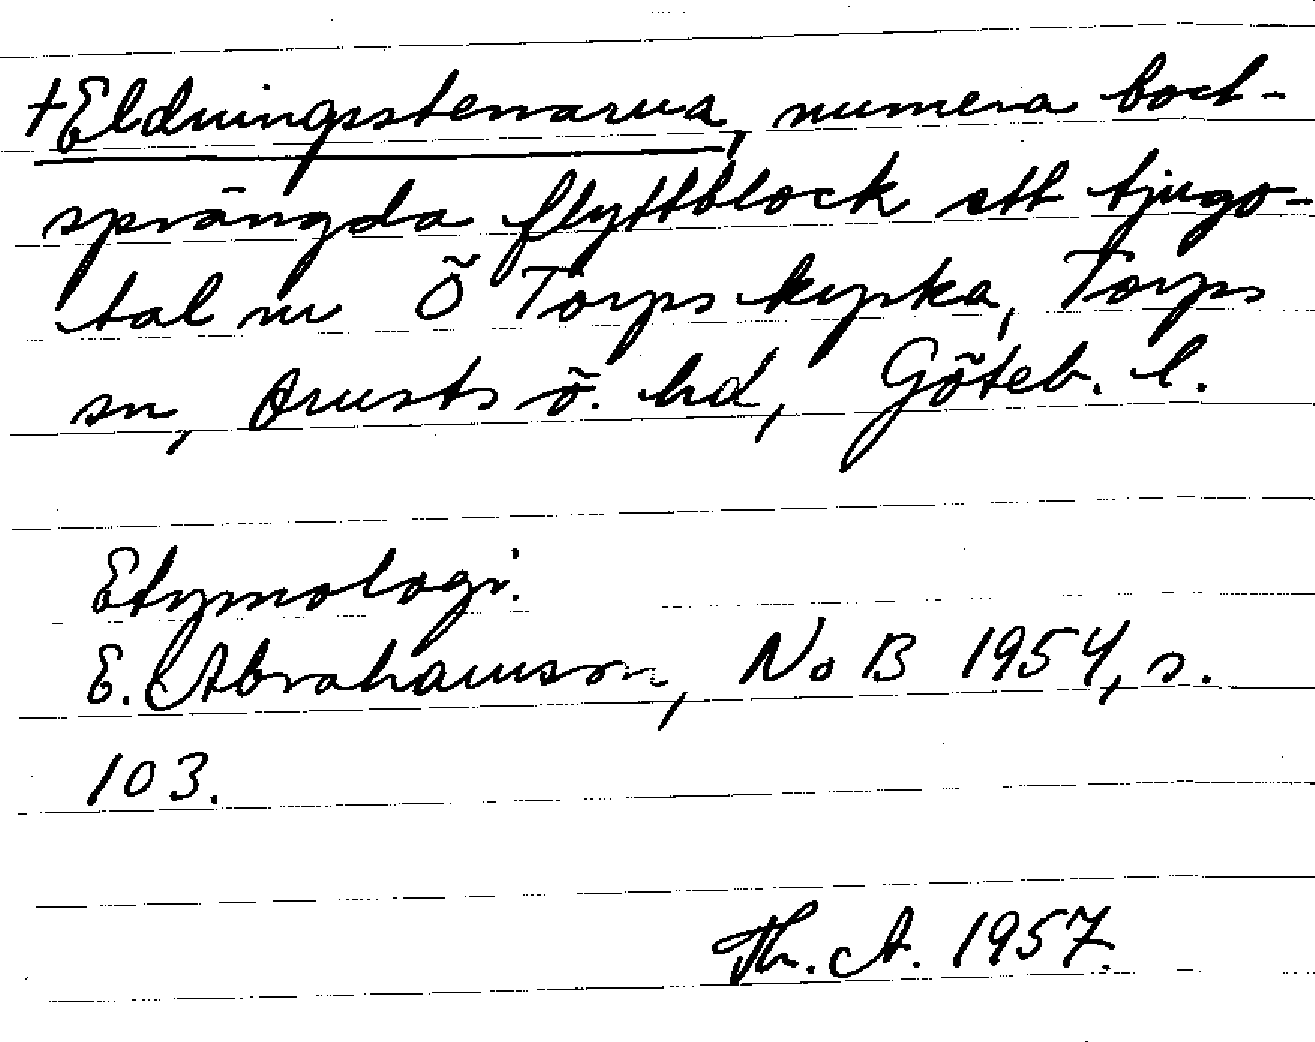 †Eldningsstenarna, numera bort-
sprängda flyttblock ett tjugo-
tal m Ö Torps kyrka, Torps
sn, Orusts ö. hd, Göteb. l.
Etymologi.
E. Abrahamson, NoB 1954, s.
103.
Th. A. 1957.